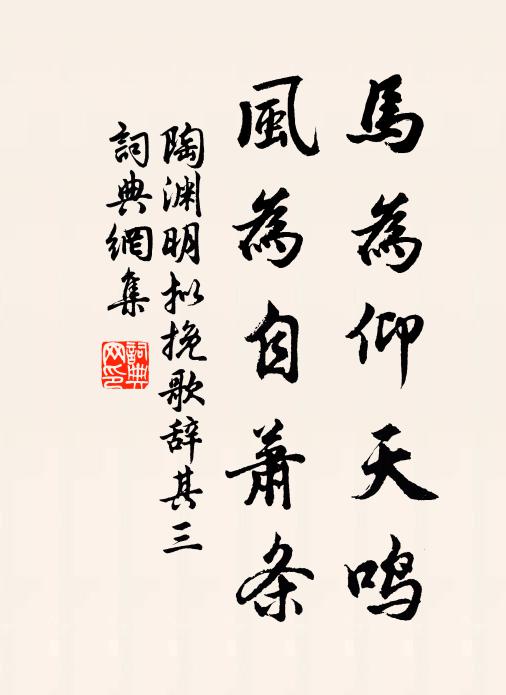 馬為仰天鸣
風為自蕭条
陶渊明拟挽歌辞其三
詞典網集
詞典网印